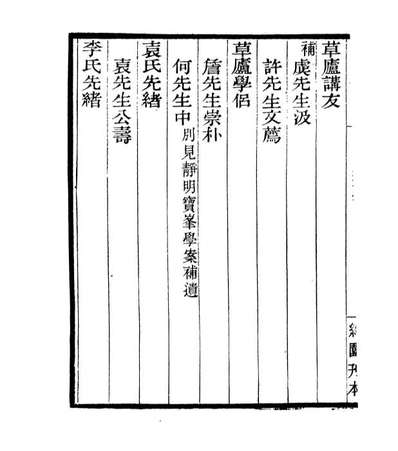 草廬講友
補虞先生汲
許先生文薦
草廬學侶
詹先生崇朴
何先生中別見靜明寶峯學案補遺
袁氏先緒
袁先生公壽
李氏先緒
約園刋本